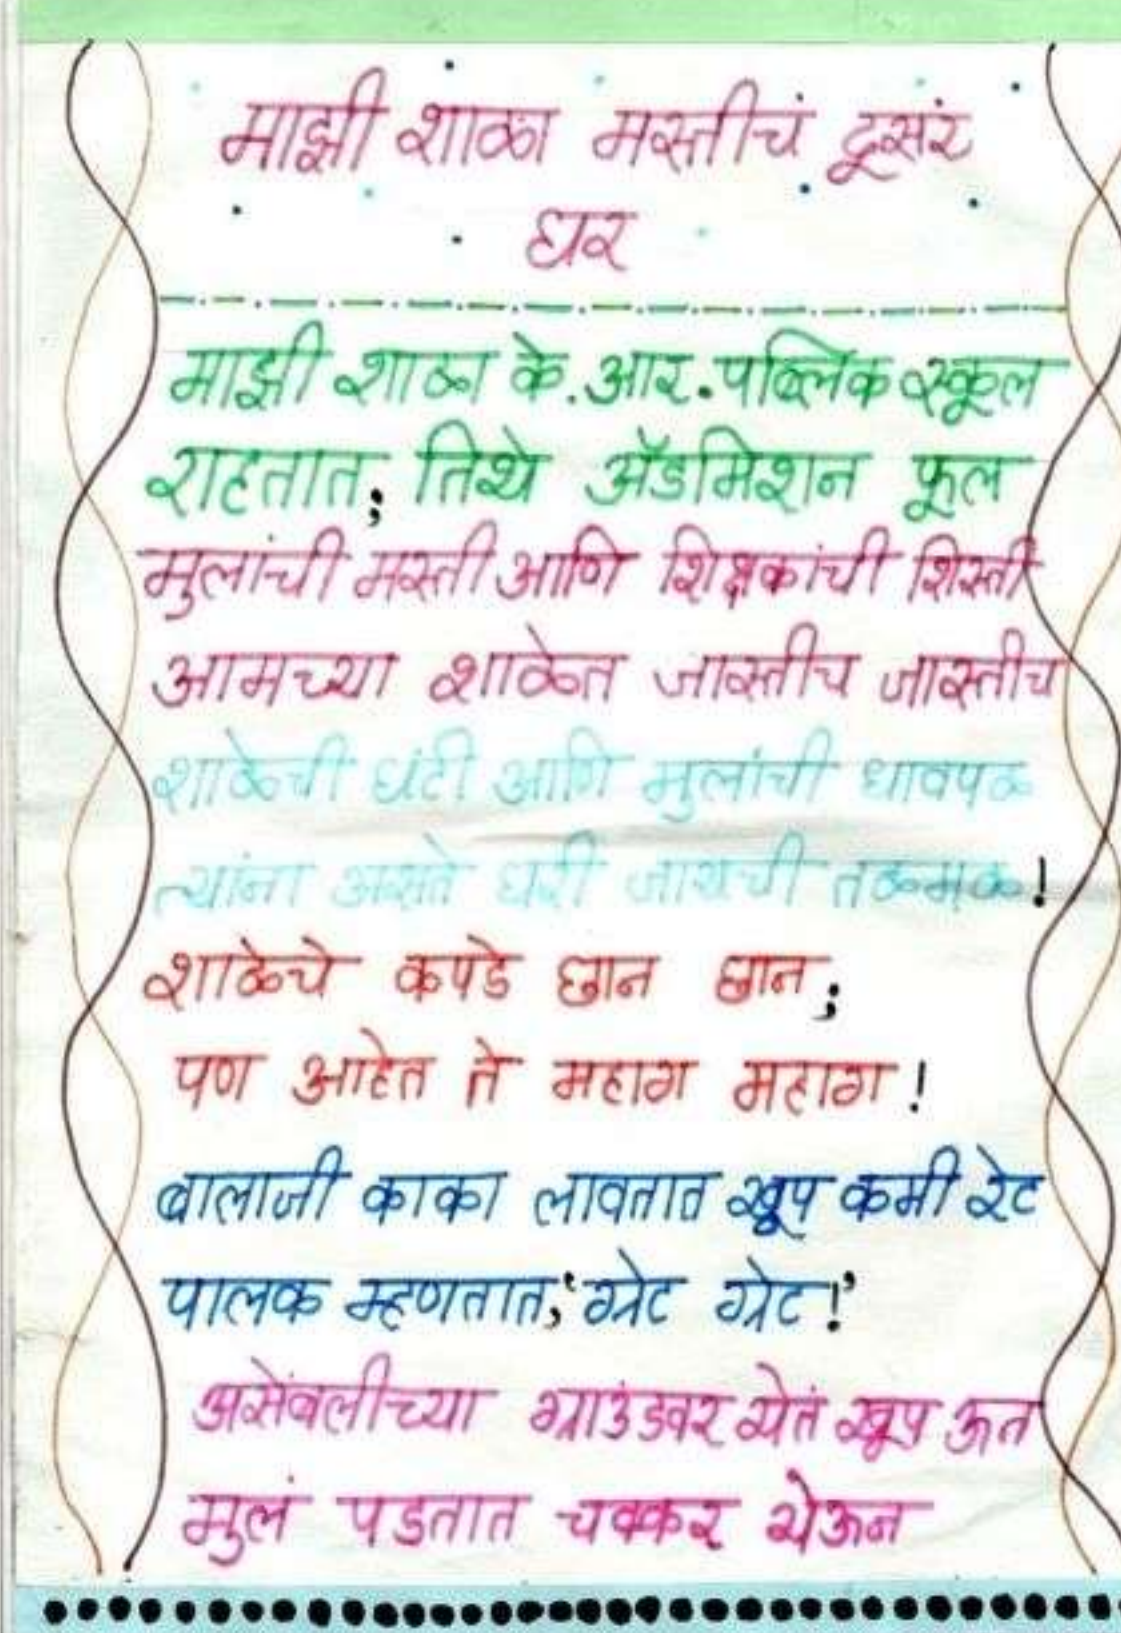 माझी शाळा मस्तीचं दूसरं
घर
माझी शाळा के.आर.पब्लिक स्कूल
राहतात; तिथे ॲडमिशन फूल
मुलांची मस्ती आणि शिक्षकांची शिस्ती
आमच्या शाळेत जास्तीच जास्तीच
शाळेची घंटी आणि मुलांची धावपळ
त्यांना असते घरी जायची तळमळ!
शाळेचे कपडे छान छान;
पण आहेत ते महाग महाग!
बालाजी काका लावतात खूप कमी रेट
पालक म्हणतात,'ग्रेट ग्रेट!'
असेंबलीच्या ग्राउंडवर येतं खूप ऊन
मुलं पडतात चक्कर येऊन